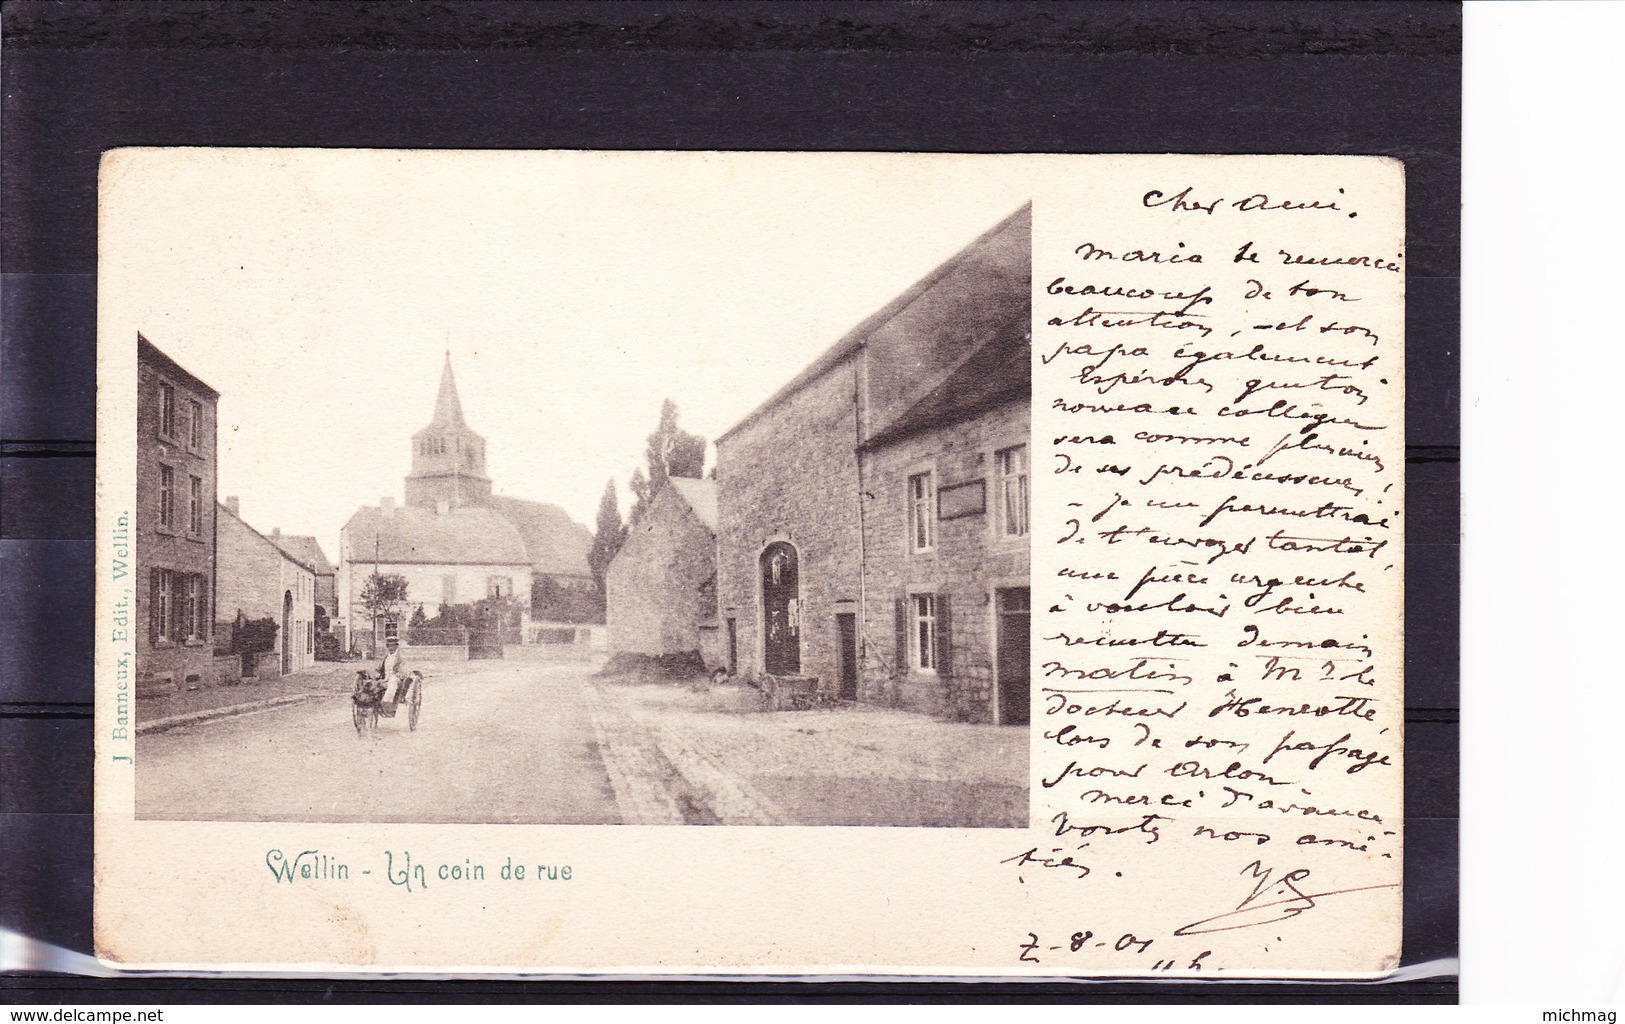 Cher Ami.
Maria te remercie
beaucoup de ton
attention, et son
papa également
Espérons que ton
nouveau collègue
sera comme plusieurs
de ses prédécesseurs!
- Je me permettrai
de t'envoyer tantôt,
une pièce urgente
à vouloir bien
remettre demain
matin à Mr le
docteur Henrotte,
lors de son passage
pour Arlon
Merci d'avance
nos ami-
tiés.
7-8-01
11 h.
J Banneux, Edit., Wellin.
Wellin - Un coin de rue
www.delcampe.net
michmag